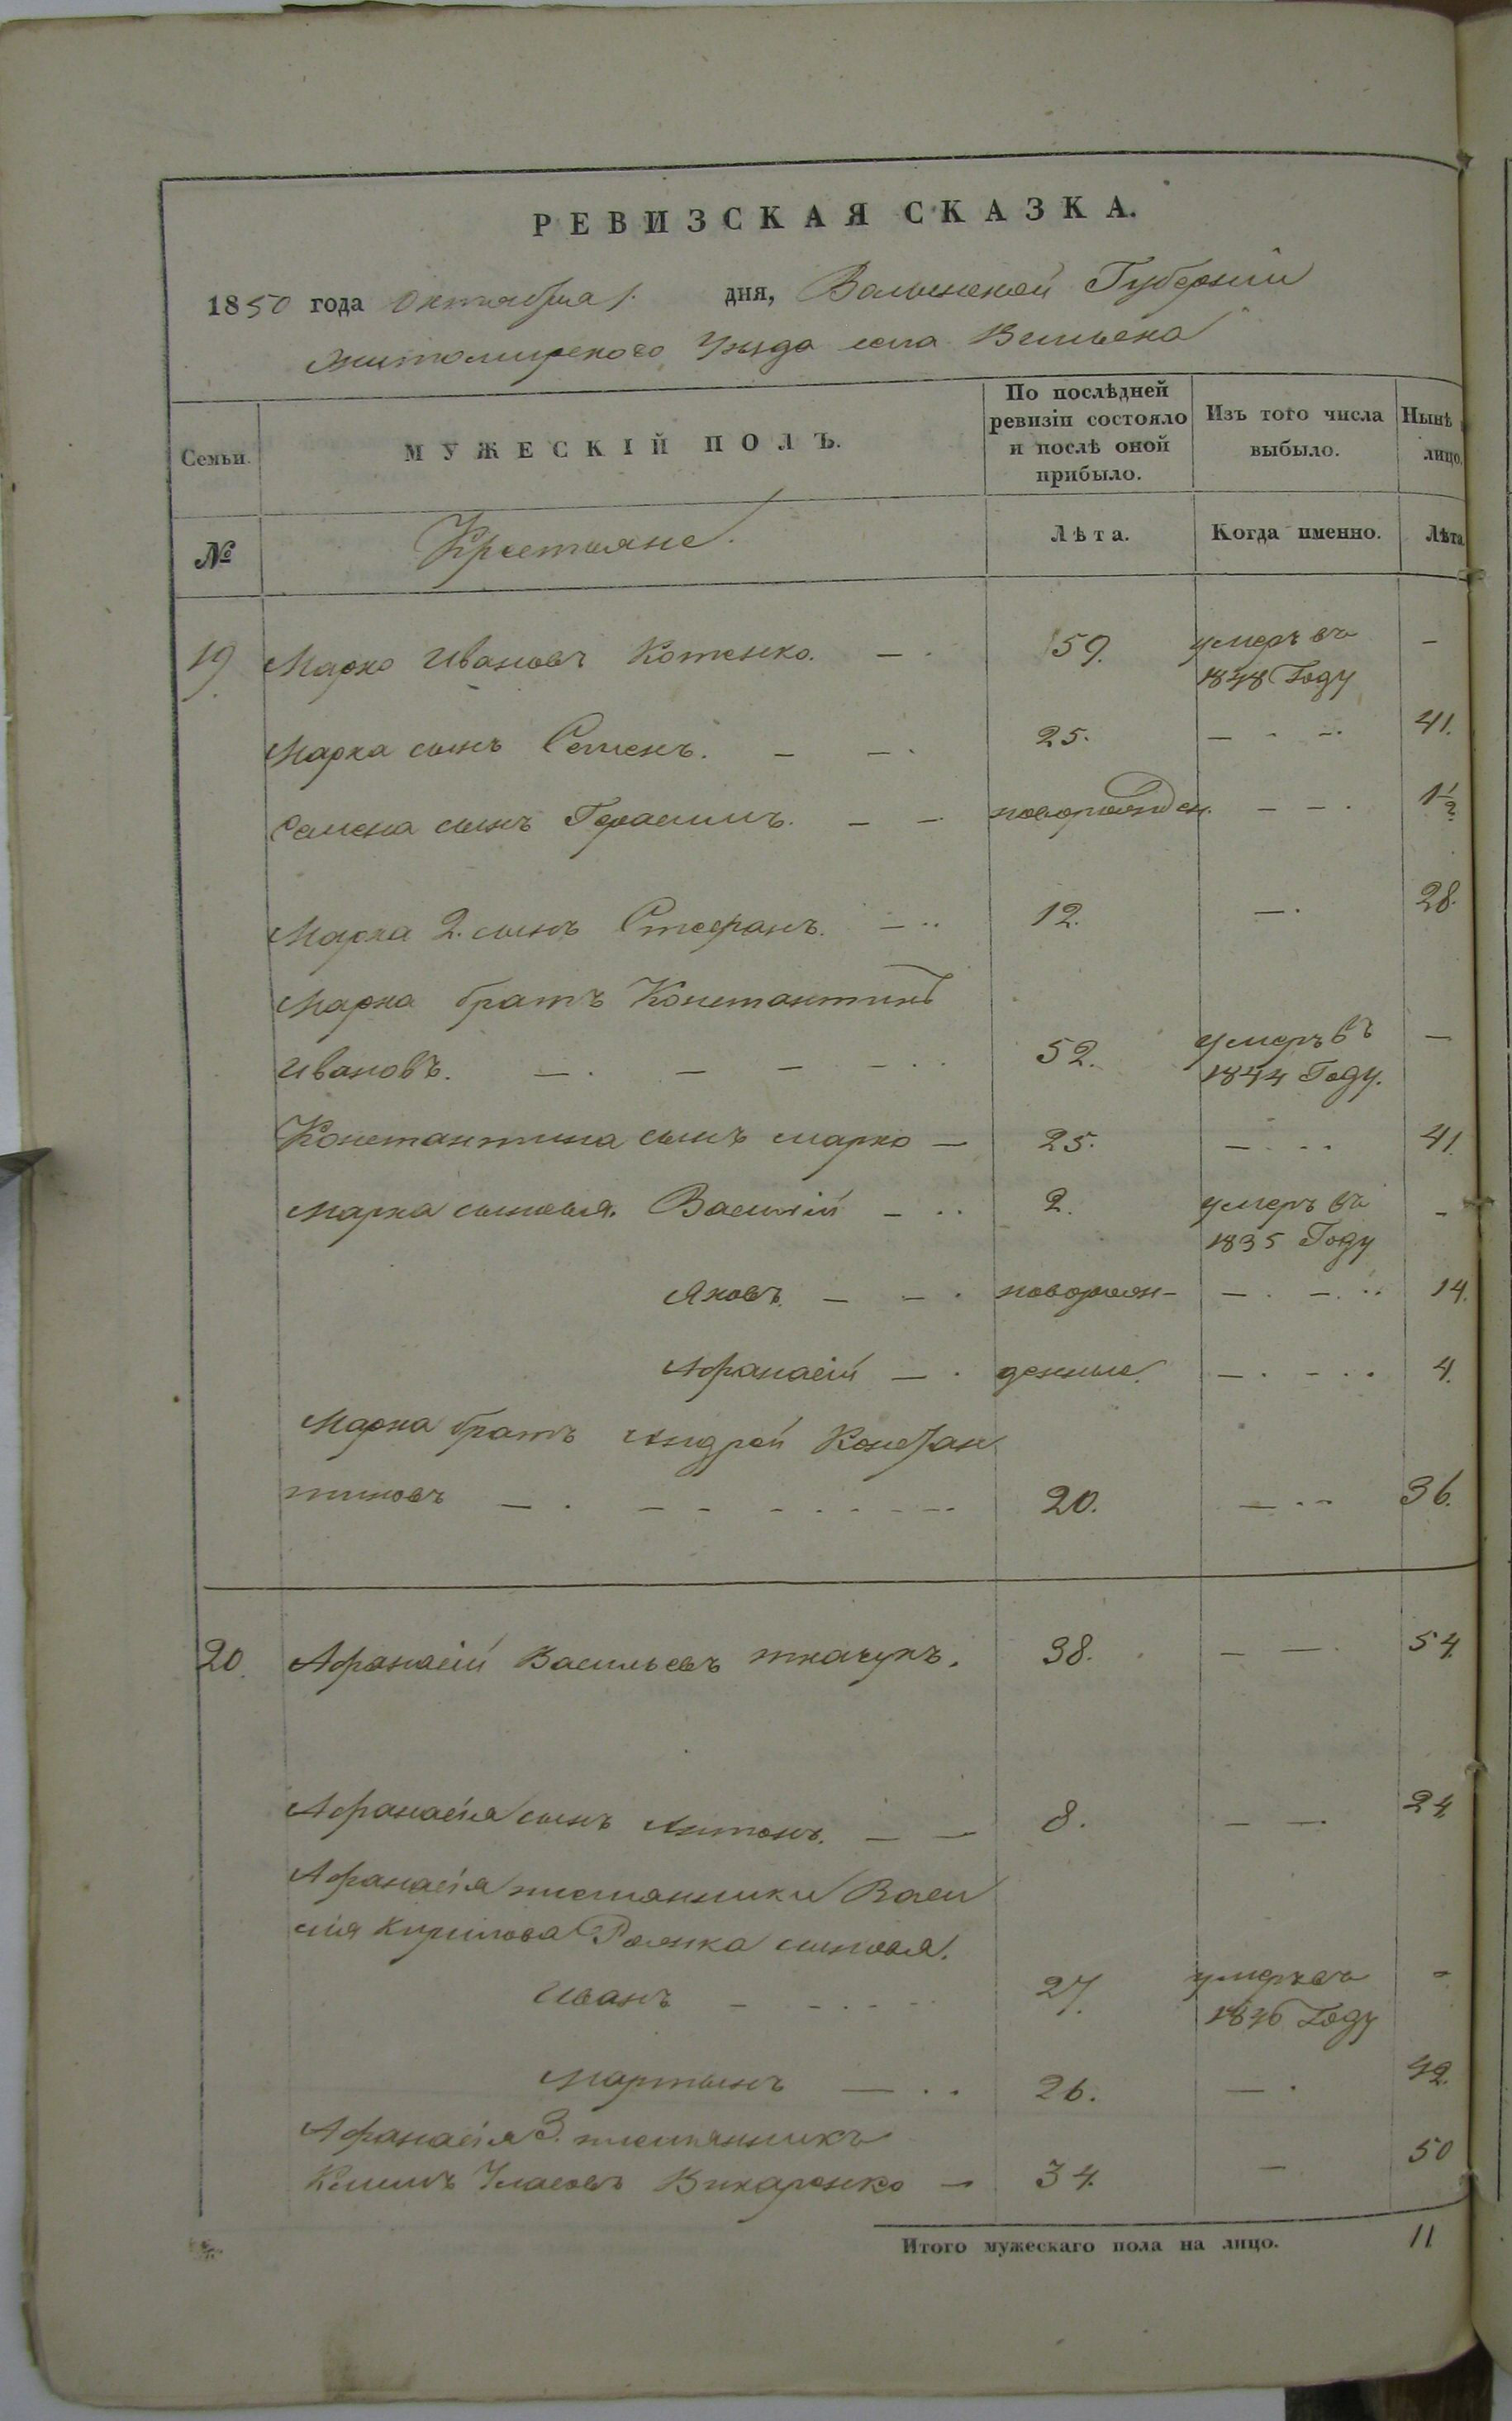 РЕВИЗСКАЯ СКАЗКА.
1850 года Октября 1. дня, Волынской Губернии
Житомирского Уезда села Вильска
Семьи.
МУЖЕСКІЙ ПОЛЪ.
По послѣдней ревизіи состояло и послѣ оной прибыло.
Изъ того числа выбыло.
Нынѣ лицо.
№ Крестьяне. Лѣта. Когда именно. Лѣта
19. Марко Ивановъ Котенко. — 59. умеръ въ 1848 Году —
Марка сынъ Семенъ. — — 25. — — 41.
Семена сынъ Герасимъ. — — новорожден. — — 1½
Марка 2. сынъ Стефанъ. — 12. — 28.
Марка братъ Константинъ
Ивановъ. — — — — 52. умеръ въ 1844 Году. —
Константина сынъ Марко — 25. — 41.
Марка сыновья. Василій — 2. умеръ въ 1835 Году —
Яковъ. — — новорож- — — 14.
Афанасій — денные. — — 4.
Марка братъ Андрей Констан
тиновъ — — — 20. — 36.
20. Афанасій Васильевъ Ткачукъ. 38. — — 54.
Афанасія сынъ Антонъ. — — 8. — — 24
Афанасія племянники Васи
лія Кирилова сыновья.
Иванъ — — 27. умеръ въ 1846 Году —
Мартынъ — 26. — 42.
Афанасія 3. племянникъ
Климъ Власовъ Вихаренко — 34. — 50
Итого мужескаго пола на лицо. 11